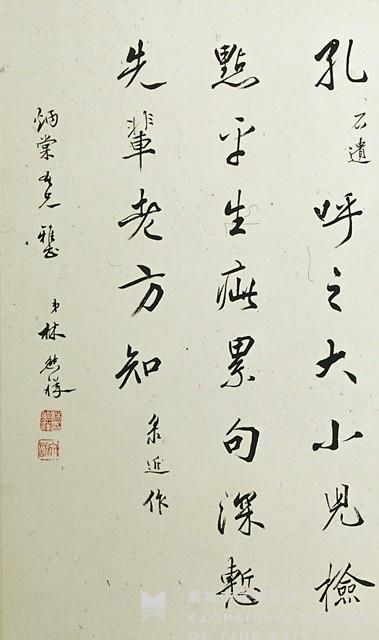 孔公遺呼之大小兒檢
點平生疵累句深慙
先輩老方知 彔近作
炳棠兄雅 弟林熊祥
KAOHSIUNG MUSEUM
OF FINE ARTS